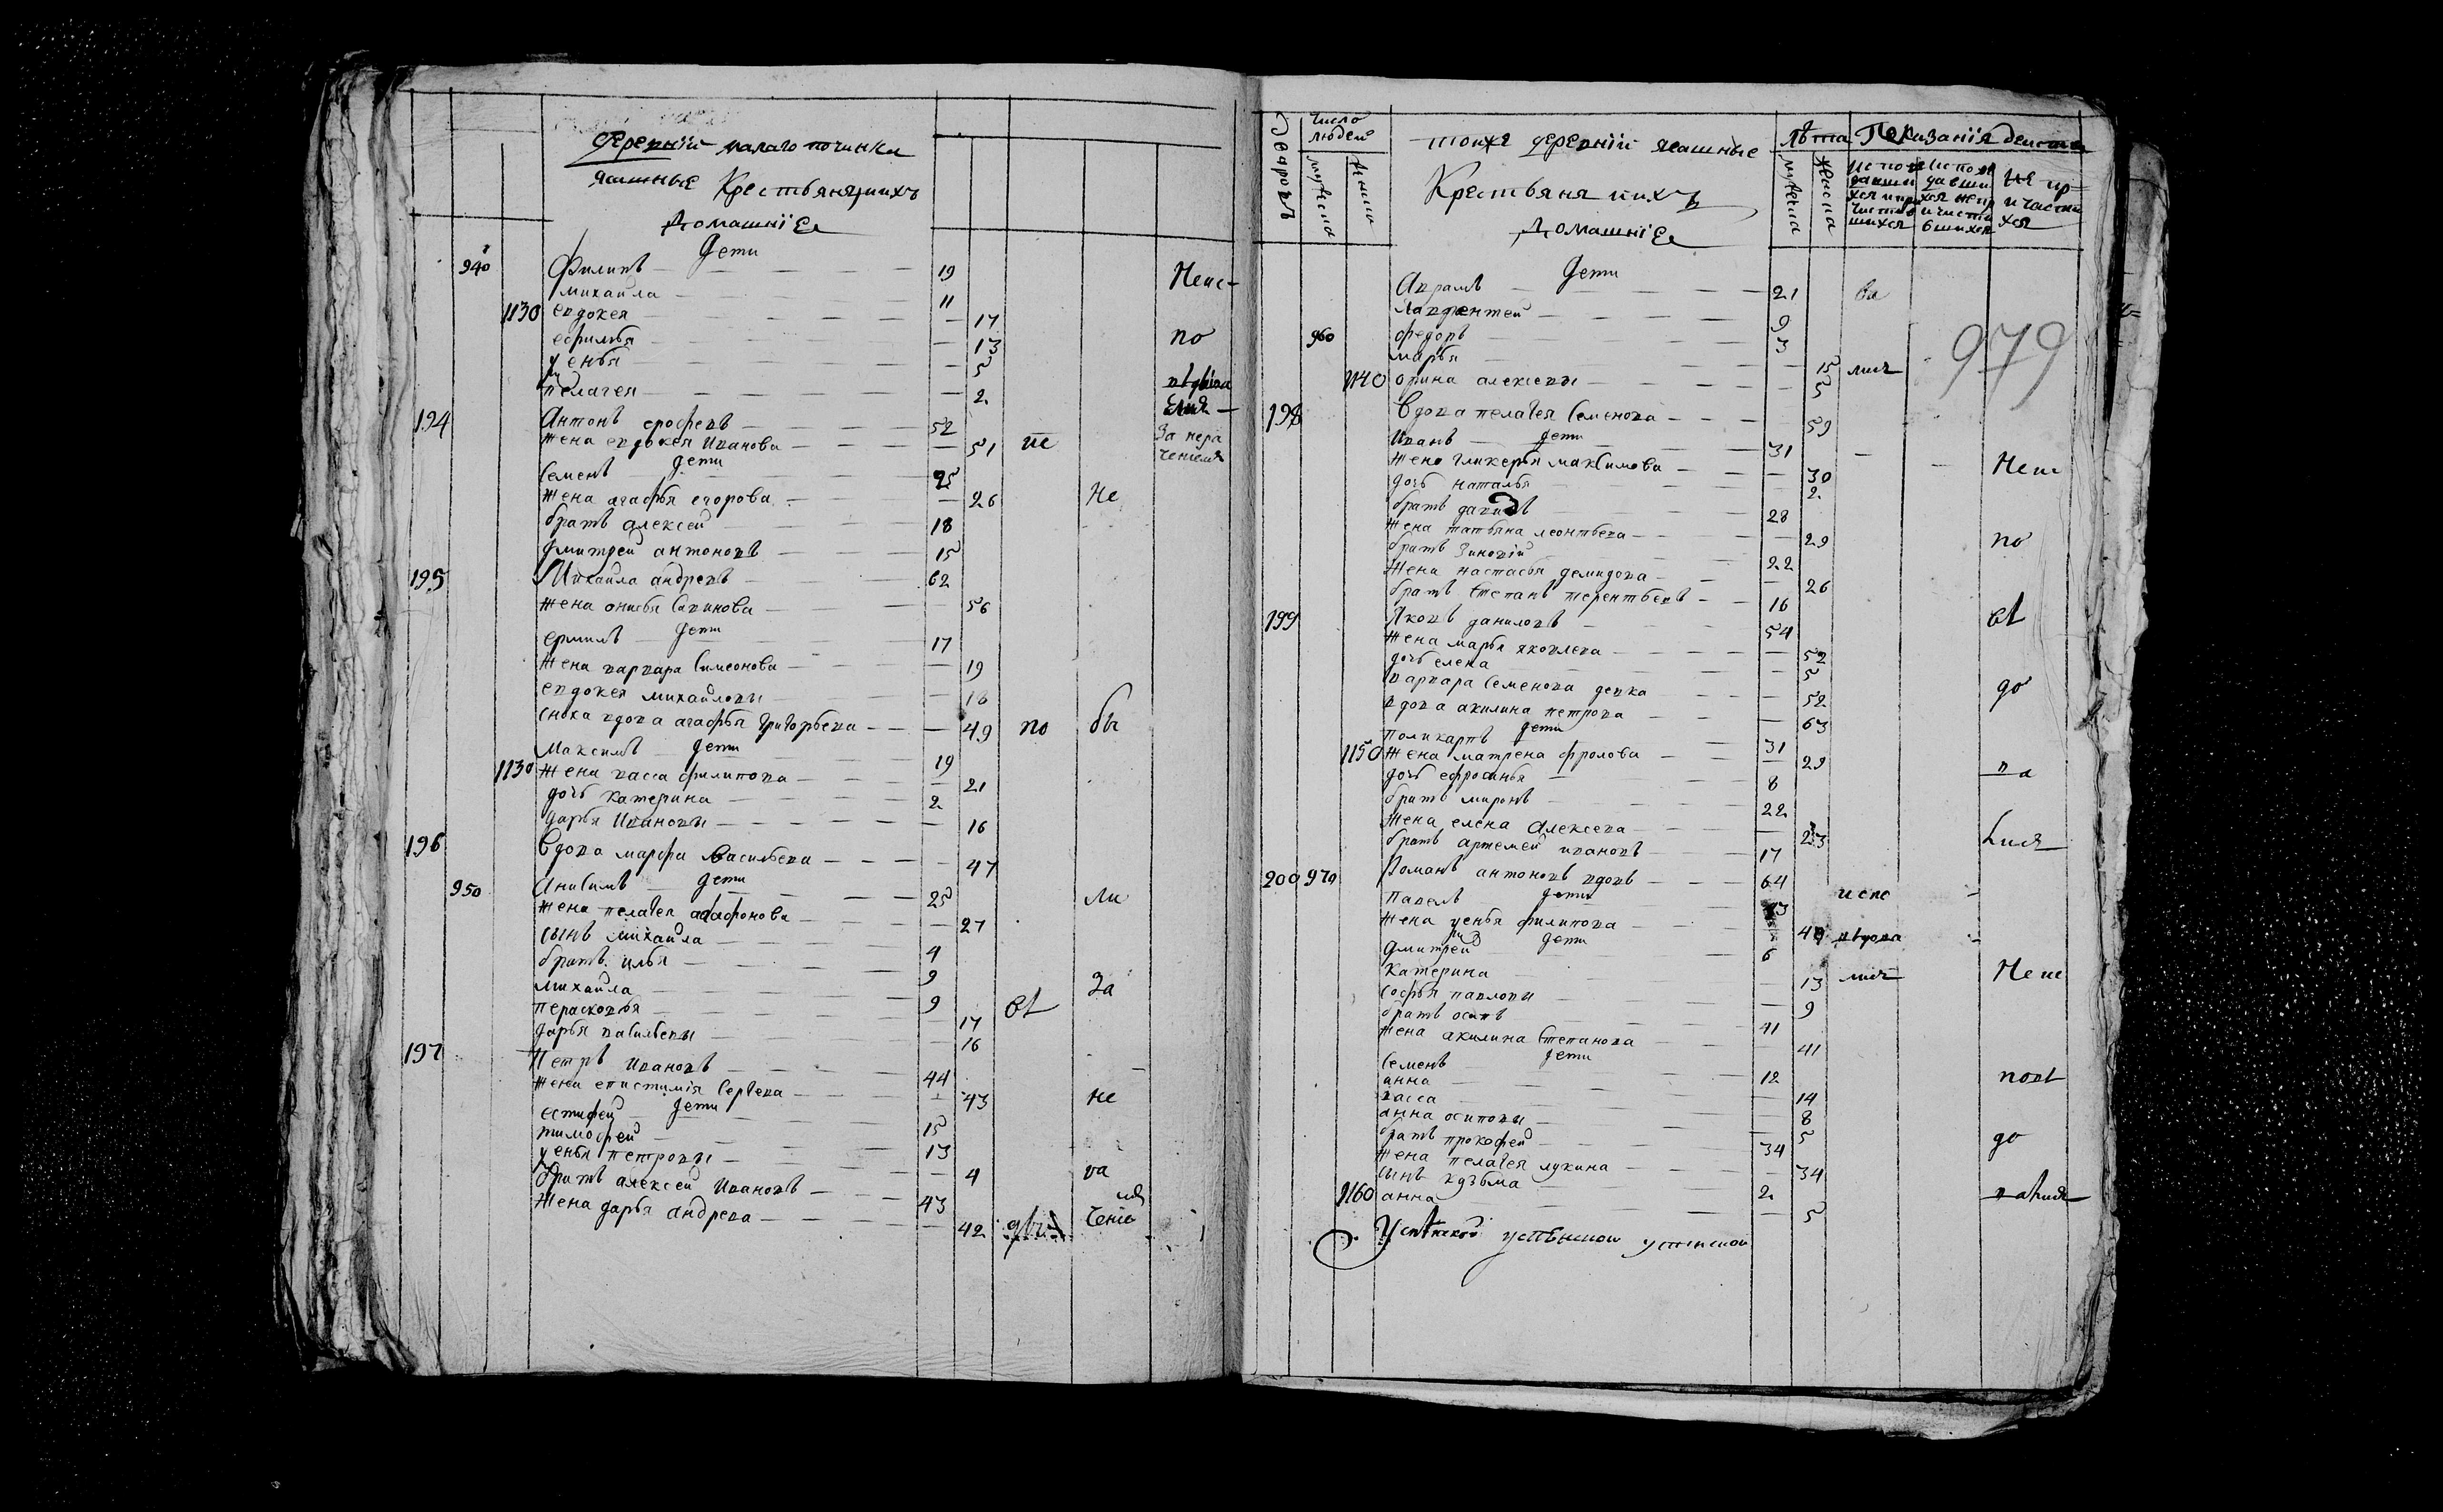 деревнiй малаго починка
ясашные Крестьяня ихъ
домашнiе
дети
940 Филипъ 19 Неис-
михайла 11
1130 евдокея 17
ефимья 13 по
ксенья 5
пелагея 2
194 Антонъ ерофеевъ 52
жена евдокея Иванова 51 ис За нера
дети чениемъ
Семенъ 25
жена агафья егорова 26 Не
братъ алексей 18
дмитрей антоновъ 15
195 Михайла андревъ 62
жена онисья Савинова 56
дети
ермилъ 17
жена варвара Симеонова 19
евдокея михайловы 16
сноха вдова агафья Григорьева 49 по бы
дети
Максимъ 19
1130 жена васса филипова 21
дочь катерина 2
дарья Ивановы 16
196 Вдова марфа Васильева 47
дети
950 Анисимъ 25 ли
жена пелагея агафонова 27
сынъ михайла 4
братъ илья 9
михайла 9 За
перасковья 17 вѣ
дарья васильевы 16
197 Петръ Ивановъ 44
жена епистимiя Сергева 43 не
дети
естифей 15
тимофей 13
ксенья петровы 4
братъ алексей Ивановъ 43
жена дарья андрева 42
Сѣдворовъ
число людей
мужеска
женска
тоижъ деревнiй ясашные
Крестьяня ихъ
домашнiе
лѣта
мужеска
женска
Показанiя действа
дети
Аврамъ 21 бы
Лаврентей 9
960 федоръ 3
марья 15 лися
1140 орина алексевы 5
198 Вдова пелагея Семенова 59
дети
Иванъ 31
жена гликерья максимова 30 Неис
дочь наталья 2
братъ давидъ 28
жена татьяна леонтьева 29 по
братъ Зиновiй 22
жена настасья демидова 26
братъ Степанъ терентьевъ 16
199 Яковъ даниловъ 54 вѣ
жена марья яковлева 52
дочь елена 5
варвара Семенова девка 52 до
вдова акилина петрова 63
дети
поликарпъ 31
1150 жена матрена фролова 29 ва
дочь ефросинья 8
братъ миронъ 22
жена елена алексева 23
братъ артемей ивановъ 17
200 970 Романъ антоновъ вдовъ 64
дети
Павелъ 43 испо
жена ксенья филипова 40
дети
дмитрей 6
катерина 13 лися Неис
софья павловы 9
братъ осипъ 41
жена акилина Степанова 41
дети
Семенъ 12 повѣ
анна 14
васса 8
анна осиповы 5
братъ прокофей 34 до
жена пелагея лукина 34
сынъ кузьма 2
1160 анна 5
979